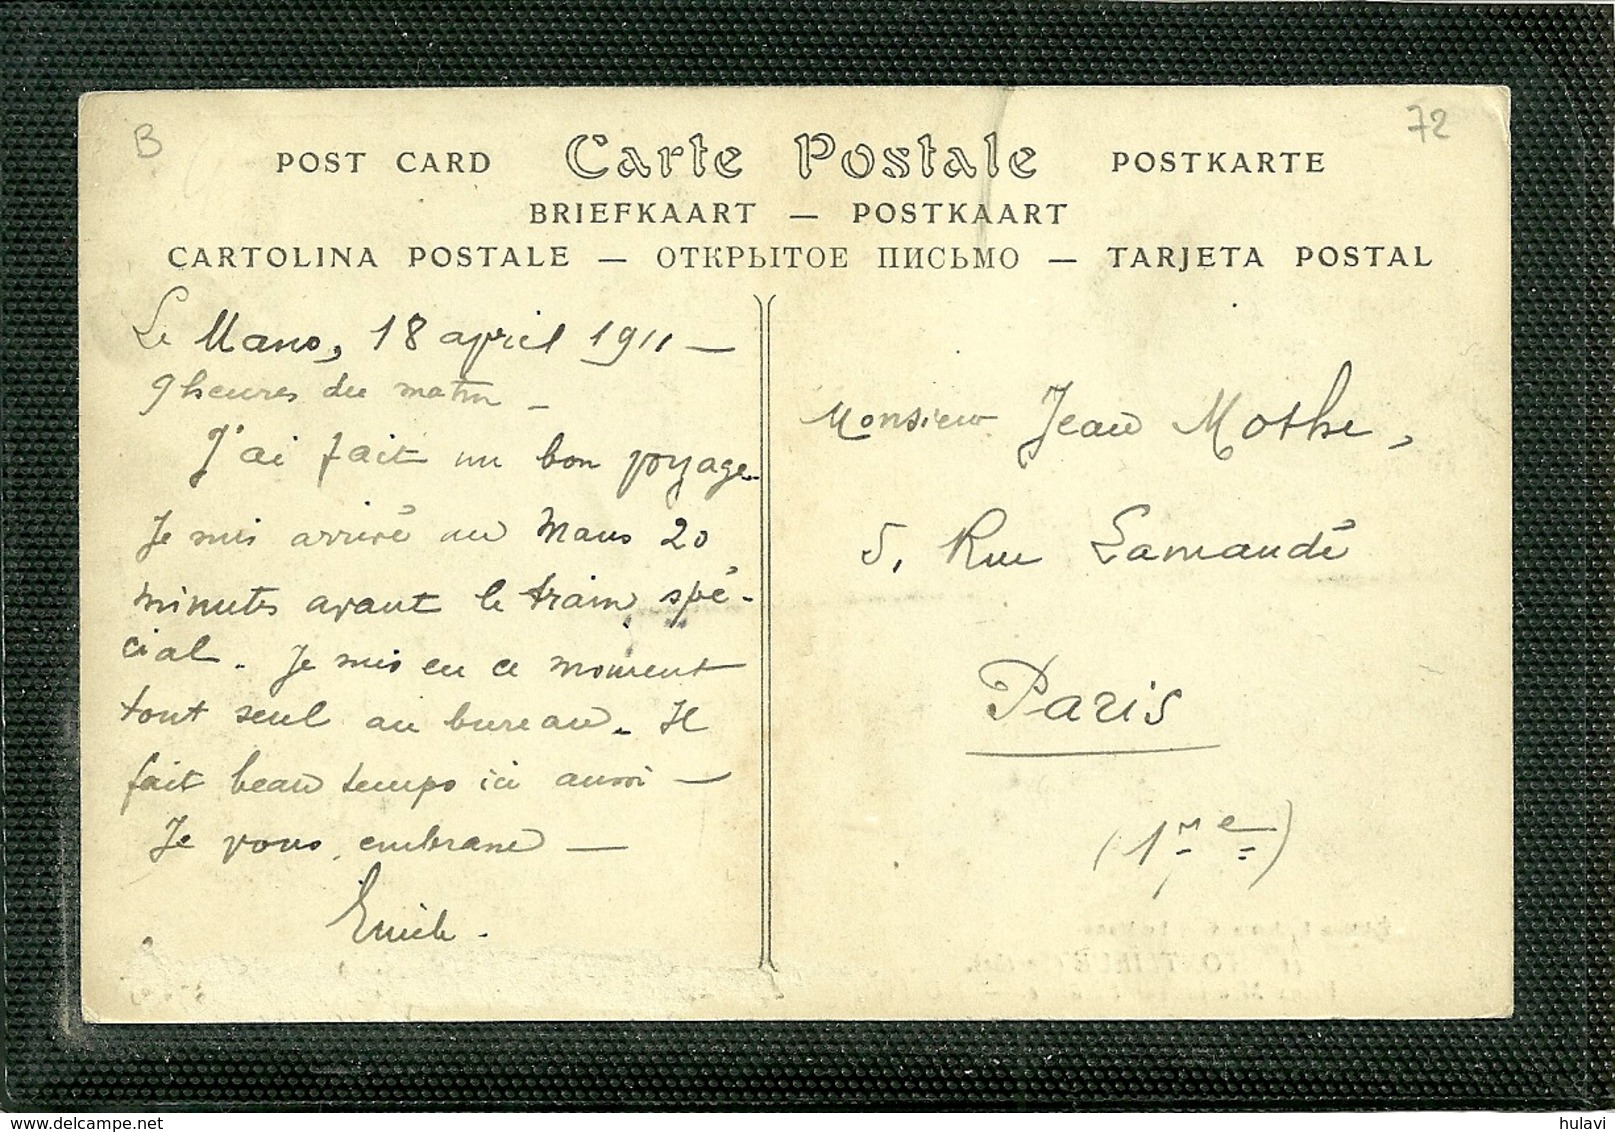 B
72
POST CARD Carte Postale POSTKARTE
BRIEFKAART — POSTKAART
CARTOLINA POSTALE — ОТКРЫТОЕ ПИСЬМО — TARJETA POSTAL
Le Mans, 18 april 1911 —
9 heures du matin —
J'ai fait un bon voyage.
Je suis arrivé au Mans 20
minutes avant le train spé-
cial. Je suis en ce moment
tout seul au bureau. Il
fait beau temps ici aussi —
Je vous embrasse —
Emile.
Monsieur Jean Mothe,
5, Rue Lamandé
Paris
(17e)
delcampe.net
hulavi